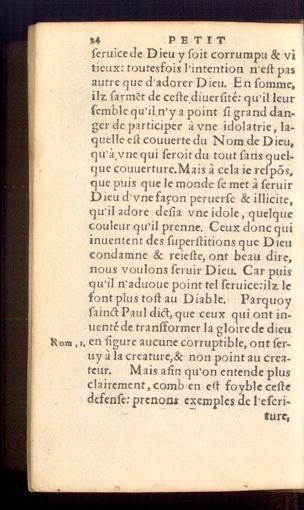 24 PETIT
ſeruice de Dieu y ſoit corrumpu & vi
tieux: toutesfois l'intention n'eſt pas
autre que d'adorer Dieu. En ſomme,
ilz ſarmẽt de ceſte diuerſité: qu'il leur
ſemble qu'il n'y a point ſi grand dan-
ger de participer à vne idolatrie, la-
quelle eſt couuerte du Nom de Dieu,
qu'à vne qui ſeroit du tout ſans quel-
que couuerture. Mais à cela ie reſpõs,
que puis que le monde ſe met à ſeruir
Dieu d'vne façon peruerſe & illicite,
qu'il adore deſia vne idole, quelque
couleur qu'il prenne. Ceux donc qui
inuentent des ſuperſtitions que Dieu
condamne & reieſte, ont beau dire,
nous voulons ſeruir Dieu. Car puis
qu'il n'aduoue point tel ſeruice: ilz le
font plus toſt au Diable. Parquoy
ſainct Paul dict, que ceux qui ont in-
uenté de tranſformer la gloire de dieu
Rom. 1. en figure aucune corruptible, ont ſer-
uy à la creature, & non point au crea-
teur. Mais afin qu'on entende plus
clairement, comb en eſt foyble ceſte
defenſe: prenons exemples de l'eſcri-
ture,